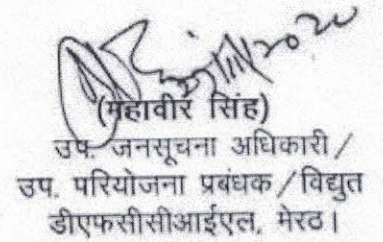 (महावीर सिंह)
उप. जनसूचना अधिकारी /
उप. परियोजना प्रबंधक / विद्युत
डीएफसीसीआईएल, मेरठ।